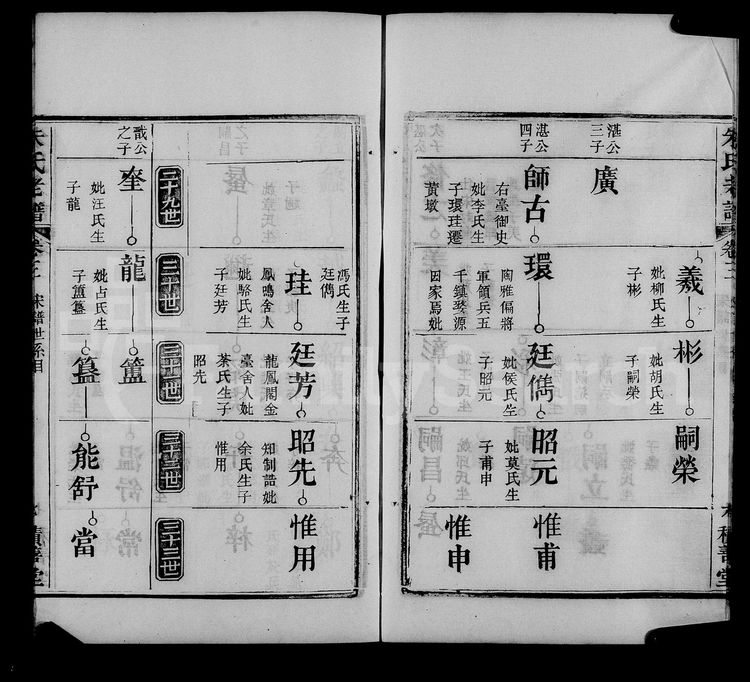 朱氏老譜
卷三
積善堂
湛公三子
廣
羲
妣柳氏生子彬
彬
妣胡氏生子嗣榮
嗣榮
湛公四子
師古
右臺御史妣李氏生子環珪遷黃墩
環
陶雅偏將軍領兵五千鎮婺源因家焉妣
馮氏生子廷儁
廷儁
妣侯氏生子昭元
昭元
妣莫氏生子甫申
惟甫
惟申
珪
鳳鳴舍人妣駱氏生子廷芳
廷芳
龍鳳閣金臺舍人妣茶氏生子昭先
昭先
知制誥妣余氏生子惟用
惟用
二十九世
三十世
三十一世
三十二世
三十三世
戬公之子
奎
妣汪氏生子龍
龍
妣占氏生子簠簋
簠
簋
能舒
當
朱氏老譜
卷三
宋譜世系目
積善堂